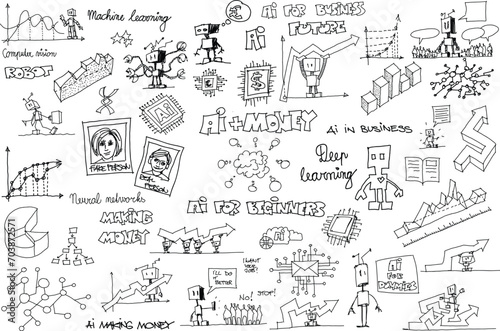 Machine learning
AI FOR BUSINESS
FUTURE
Ai
Computer vision
ROBOT
$
Ai
Ai + MONEY
Ai IN BUSINESS
FAKE PERSON
REAL PERSON
Deep
learning
Neural networks
MAKING
MONEY
Ai FOR BEGINNERS
Ai
I'LL DO
IT
BETTER
NO! STOP!
I WANT
YOUR
JOB!
Ai
FOR
DUMMIES
Ai MAKING MONEY
Adobe Stock | #703872571